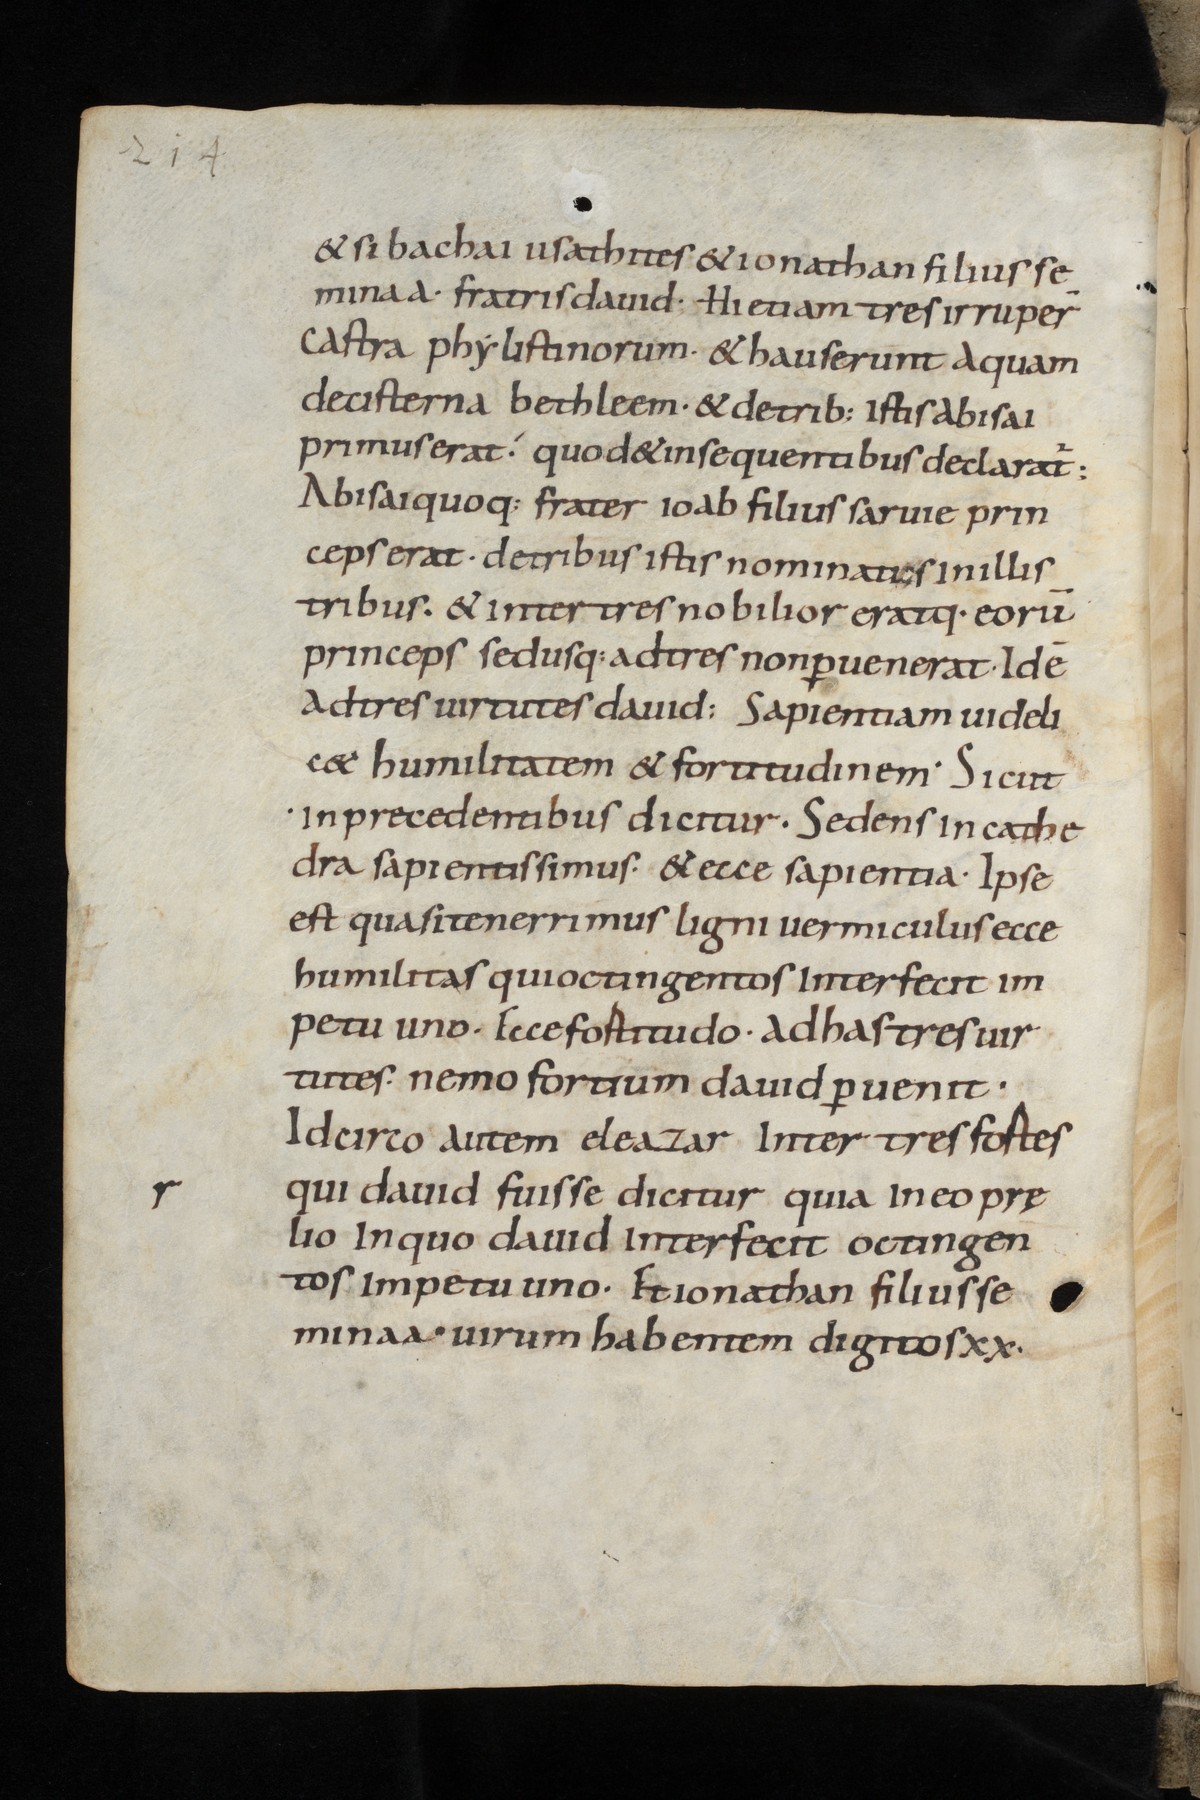 214
& si bachai usathites & ionathan filius se
minaa· fratris dauid· Hi etiam tres irruper̄
castra phẏlistinorum· & hauserunt aquam
de cisterna bethleem· & de trib: istis abisai
primus erat·́ quod & in sequentibus declarat̃:
Abisai quoq: frater ioab filius saruie prin
ceps erat· de tribus istis nominatos in illis
tribus. & inter tres nobilior eratq· eorū
princeps sed usq: ad tres non ꝑuenerat· Idē
ad tres uirtutes dauid: Sapientiam uideli
c& humilitatem & fortitudinem· Sicut
·in precedentibus dicitur. Sedens in cathe
dra sapientissimus· & ecce sapientia· Ipse
est quasi tenerrimus ligni uermiculus ecce
humilitas qui octingentos interfecit im
petu uno· Ecce fostitudo· ad has tres uir
tutes· nemo fortium dauid ꝑuenit·
Idcirco autem eleazar Inter tres fostes
r qui dauid fuisse dicitur quia in eo prę
lio In quo dauid interfecit octingen
tos impetu uno· Et ionathan filius se
minaa· uirum habentem digitos xx·